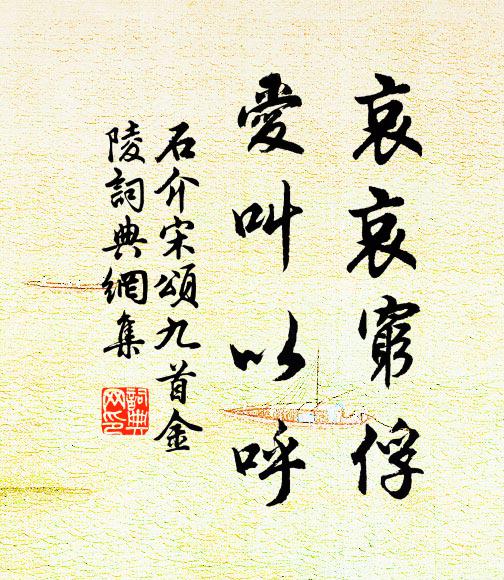 哀哀窮俘
愛叫以呼
石介宋頌九首金
陵詞典網集
詞典
网印